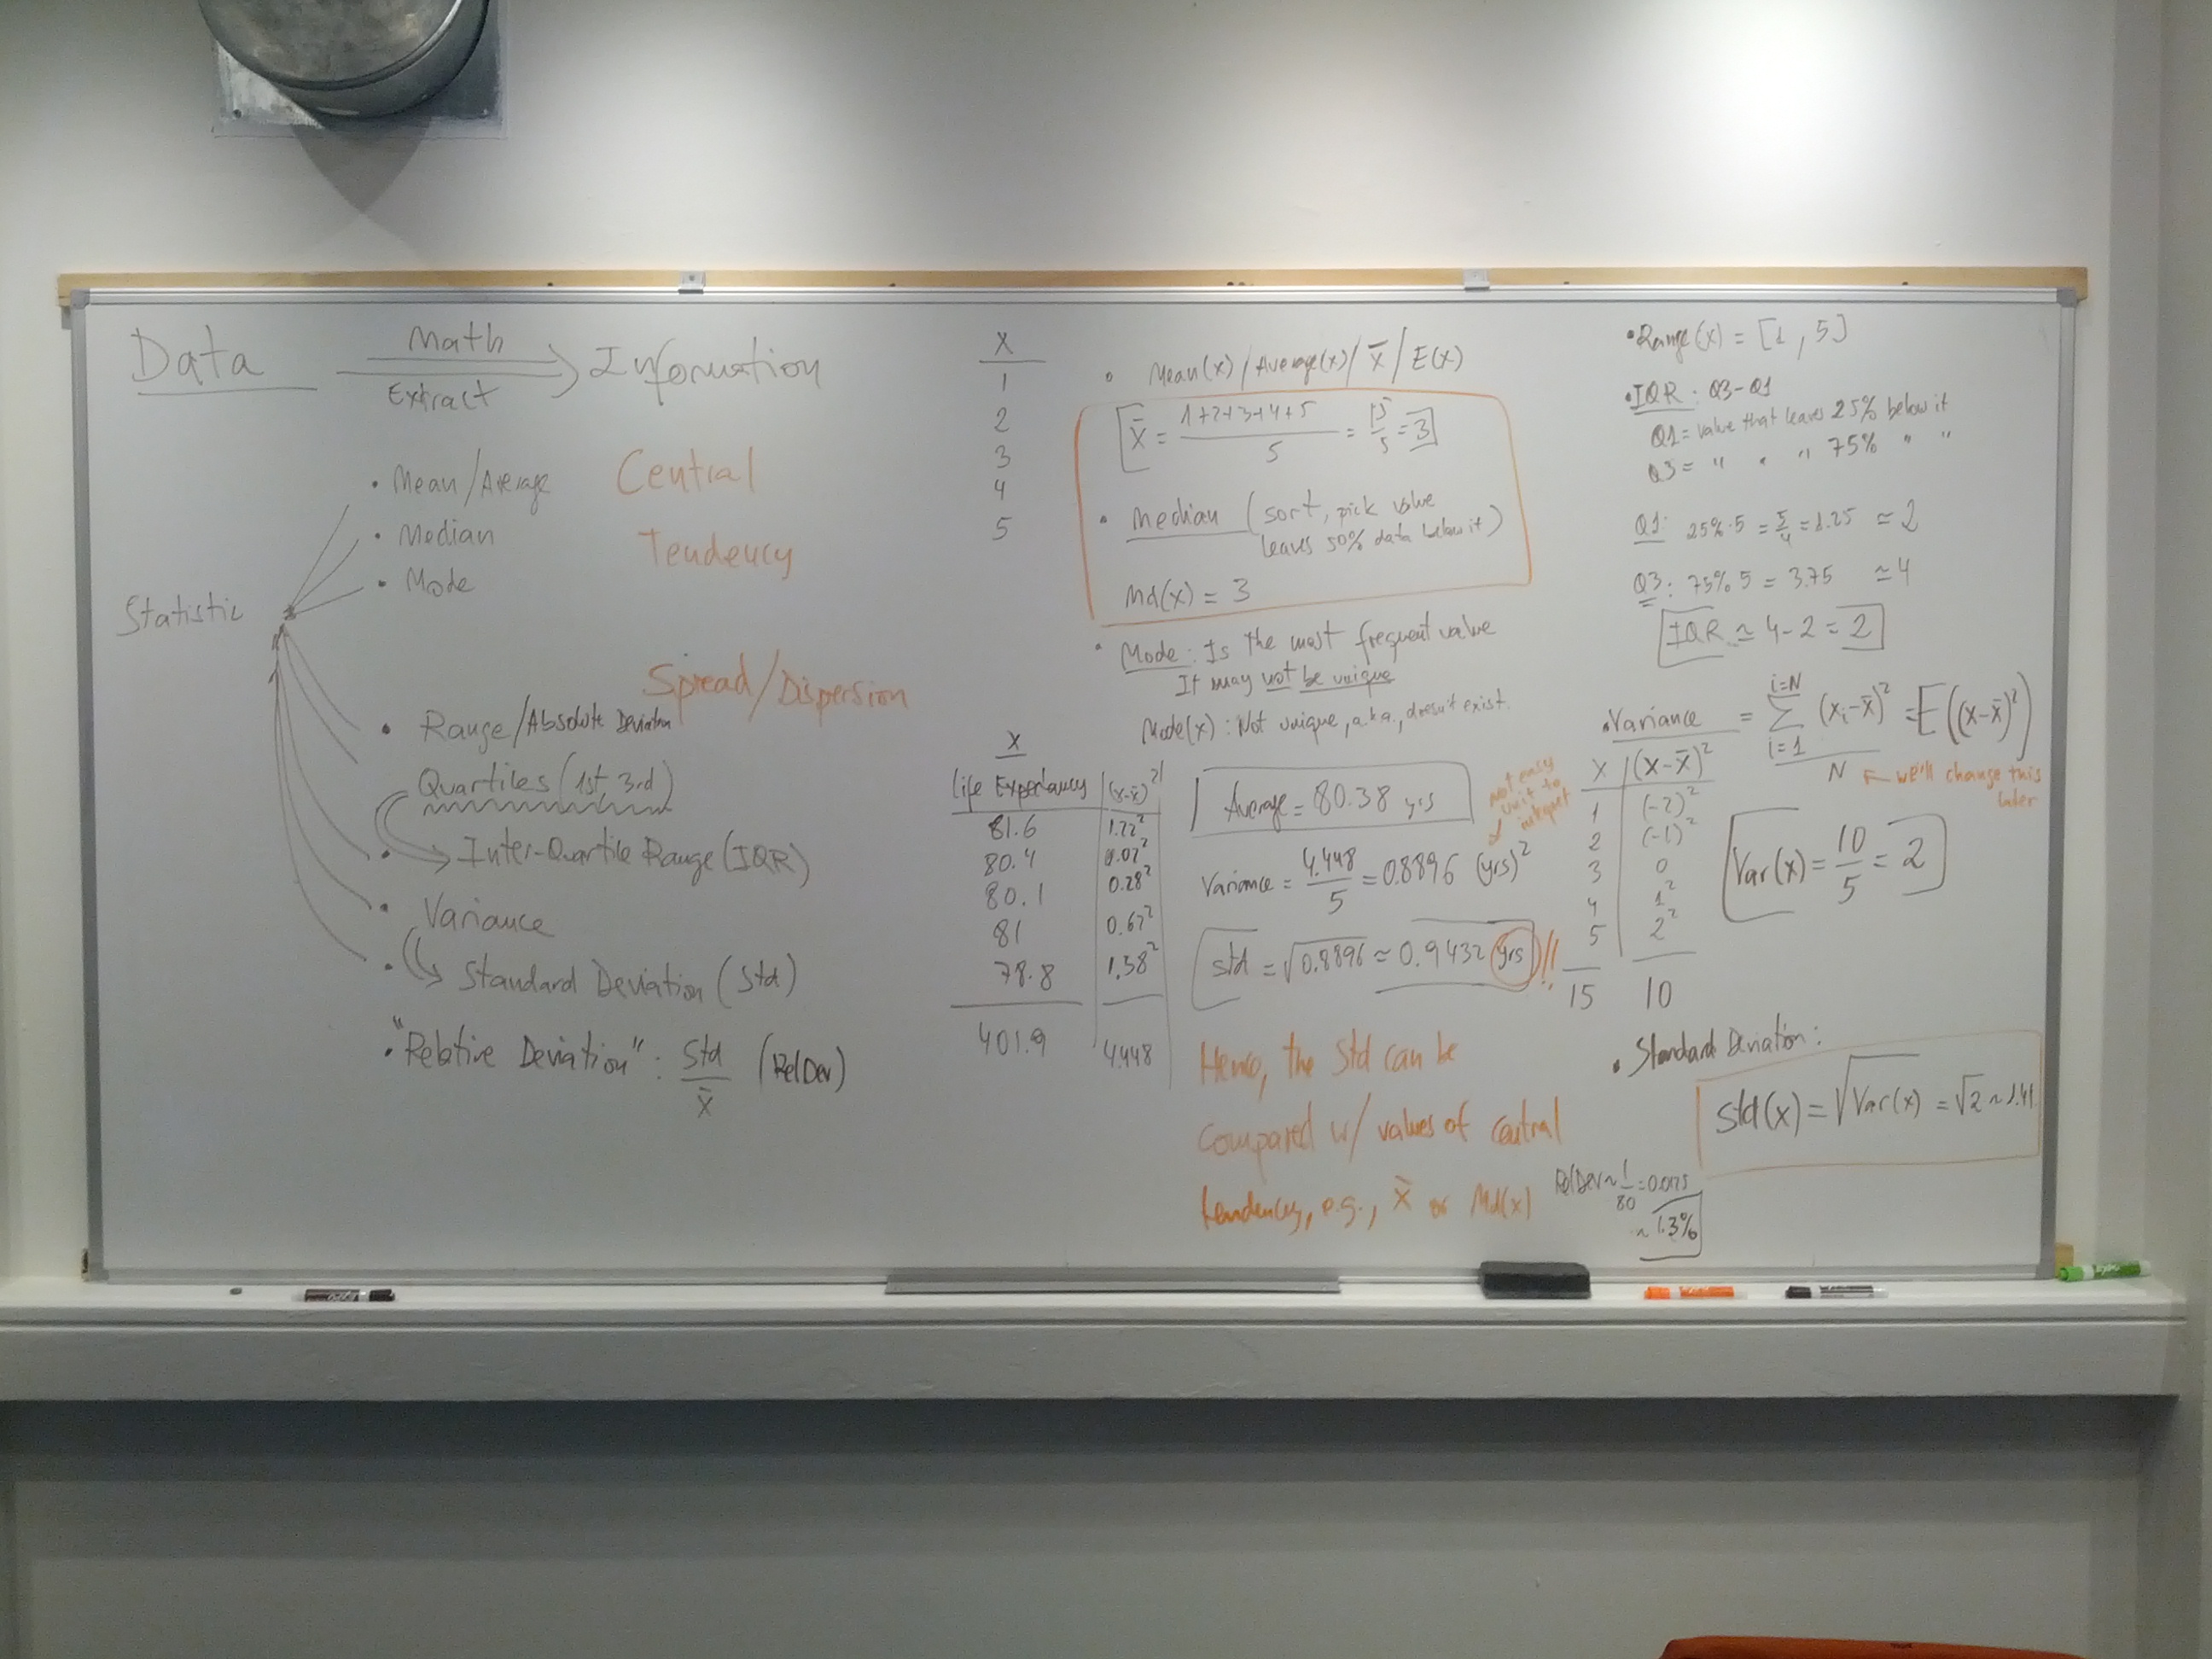 Data
Math
Extract
Information
Statistic
• Mean/Average
• Median
• Mode
Central
Tendency
Spread/Dispersion
• Range/Absolute Deviation
Quartiles (1st, 3rd)
• Inter-Quartile Range (IQR)
• Variance
• Standard Deviation (Std)
• "Relative Deviation": Std/x̄ (RelDev)
X
1
2
3
4
5
• Mean(x)/Average(x)/x̄/E(x)
x̄ = (1+2+3+4+5)/5 = 15/5 = 3
• Median (sort, pick value
leaves 50% data below it)
Md(x) = 3
• Mode: Is the most frequent value
It may not be unique
Mode(x): Not unique, a.k.a., doesn't exist.
X
Life Expectancy | (x-x̄)²
81.6 | 1.22²
80.4 | 0.02²
80.1 | 0.28²
81 | 0.62²
78.8 | 1.58²
401.9 | 4.448
Average = 80.38 yrs
Variance = 4.448/5 = 0.8896 (yrs)²
not easy
unit to
interpret
Std = √0.8896 ≈ 0.9432 yrs !!
Hence, the Std can be
compared w/ values of central
tendency, e.g., x̄ or Md(x)
• Range(x) = [1, 5]
• IQR: Q3-Q1
Q1 = value that leaves 25% below it
Q3 = " " " 75% " "
Q1: 25%·5 = 5/4 = 1.25 ≃ 2
Q3: 75%·5 = 3.75 ≃ 4
IQR ≃ 4-2 = 2
• Variance = Σ i=1 i=N (xi-x̄)² / N = E((x-x̄)²)
← we'll change this
later
X | (x-x̄)²
1 | (-2)²
2 | (-1)²
3 | 0
4 | 1²
5 | 2²
15 | 10
Var(x) = 10/5 = 2
• Standard Deviation:
Std(x) = √Var(x) = √2 ~ 1.41
RelDev ~ 1/80 = 0.0125
~ 1.3%
expo